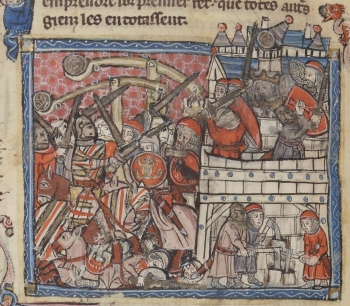 emprendre lor premier fet. que totes autˢ
gienz les en totassent.